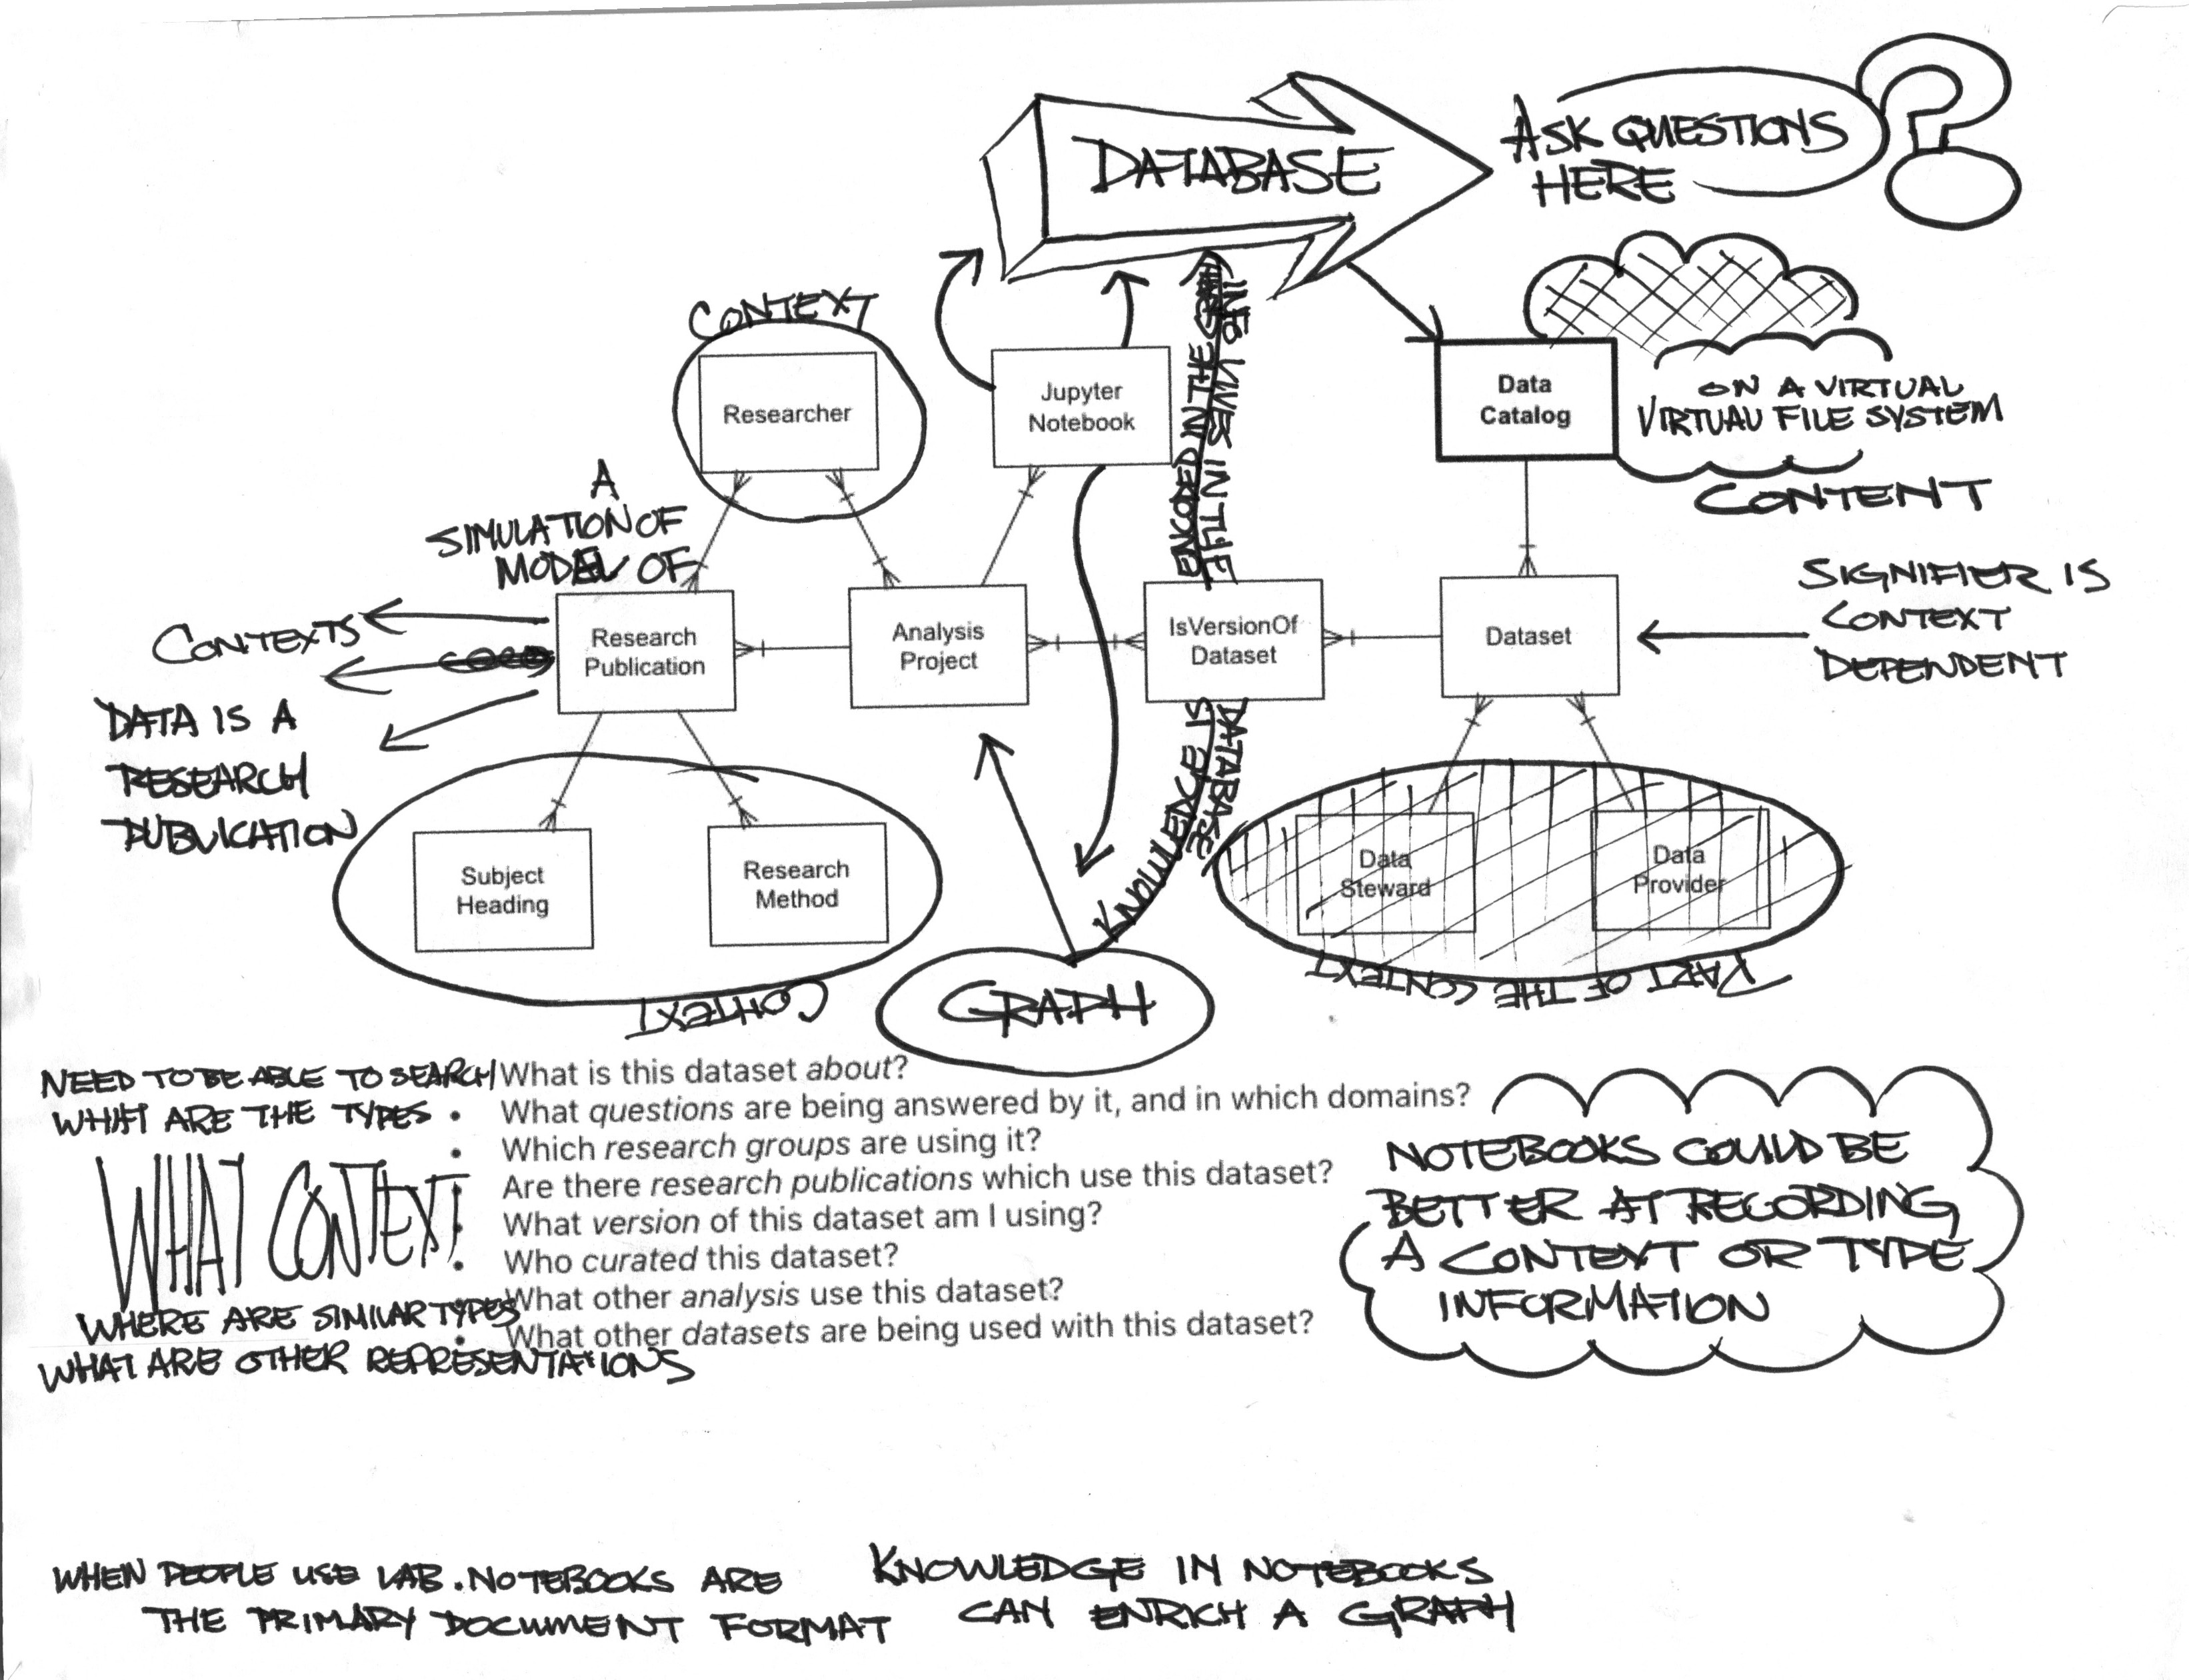 DATABASE
ASK QUESTIONS
HERE
?
CONTEXT
Researcher
Jupyter
Notebook
Data
Catalog
ON A VIRTUAL
VIRTUAL FILE SYSTEM
CONTENT
A
SIMULATION OF
MODEL OF
Research
Publication
Analysis
Project
IsVersionOf
Dataset
Dataset
SIGNIFIER IS
CONTEXT
DEPENDENT
CONTEXTS
DATA IS A
RESEARCH
PUBLICATION
KNOWLEDGE IS
ENCODED IN THE
DATABASE
LIVES IN THE
Subject
Heading
Research
Method
CONTEXT
GRAPH
Data
Steward
Data
Provider
PART OF THE CONTEXT
NEED TO BE ABLE TO SEARCH
WHAT ARE THE TYPES
WHAT CONTEXT
WHERE ARE SIMILAR TYPES
WHAT ARE OTHER REPRESENTATIONS
What is this dataset about?
• What questions are being answered by it, and in which domains?
• Which research groups are using it?
• Are there research publications which use this dataset?
• What version of this dataset am I using?
• Who curated this dataset?
• What other analysis use this dataset?
• What other datasets are being used with this dataset?
NOTEBOOKS COULD BE
BETTER AT RECORDING
A CONTEXT OR TYPE
INFORMATION
WHEN PEOPLE USE LAB. NOTEBOOKS ARE
THE PRIMARY DOCUMENT FORMAT
KNOWLEDGE IN NOTEBOOKS
CAN ENRICH A GRAPH